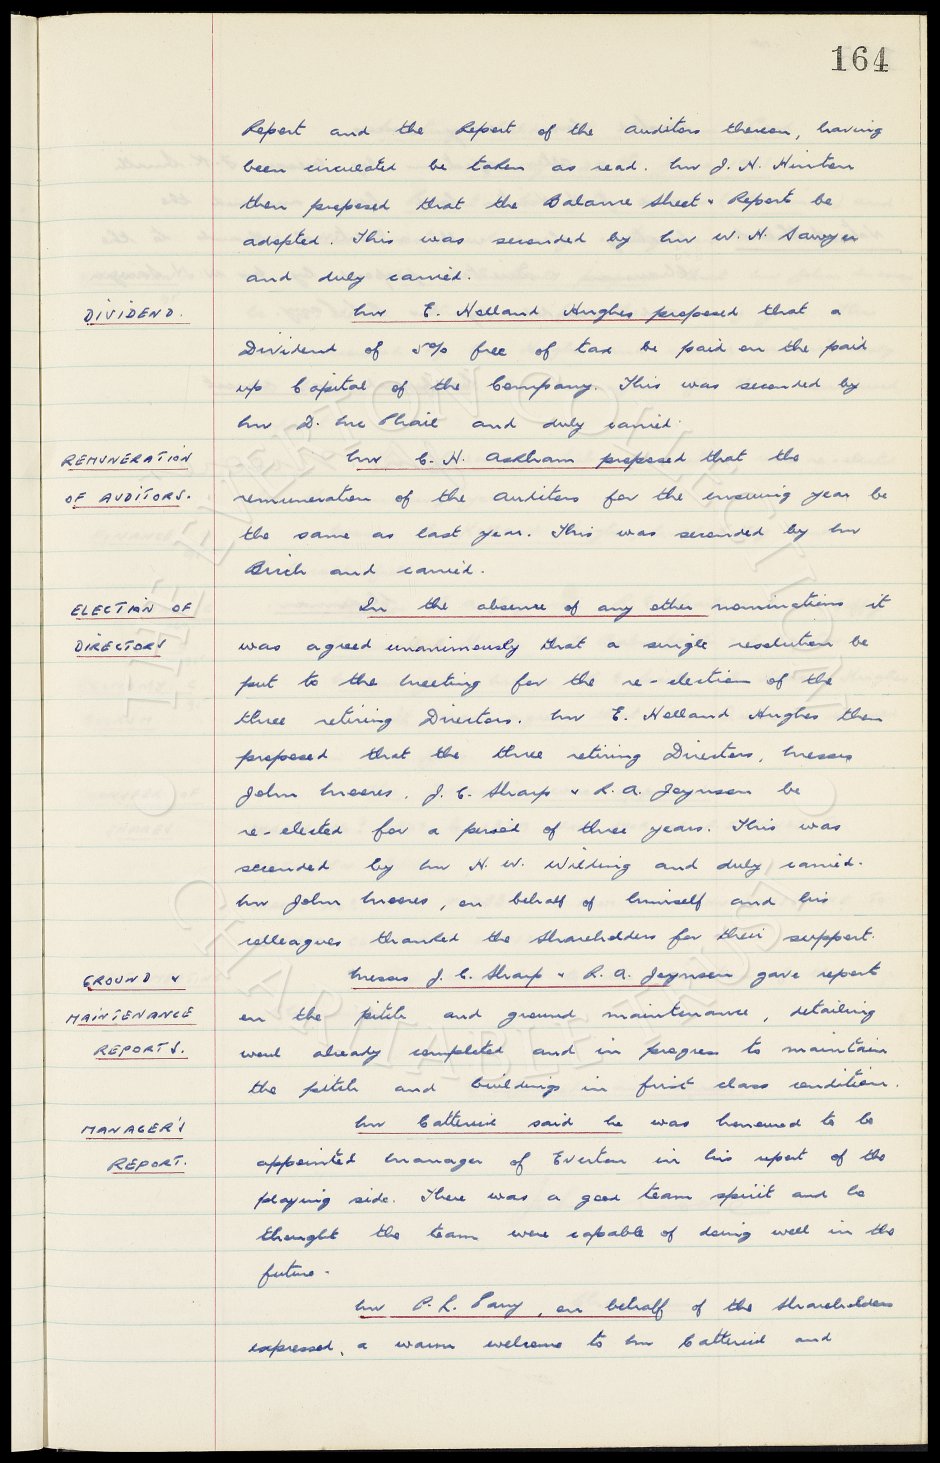 164
Report and the Report of the Auditors thereon, having
been circulated be taken as read. Mr J. N. Hinton
then proposed that the Balance Sheet & Reports be
adopted. This was seconded by Mr W. H. Sawyer
and duly carried.
DIVIDEND. Mr E. Holland Hughes proposed that a
Dividend of 5% free of tax be paid on the paid
up Capital of the Company. This was seconded by
Mr D. McPhail and duly carried.
REMUNERATION Mr C. H. Askham proposed that the
OF AUDITORS. remuneration of the Auditors for the ensuing year be
the same as last year. This was seconded by Mr
Birch and carried.
ELECTION OF In the absence of any other nominations it
DIRECTORS was agreed unanimously that a single resolution be
put to the Meeting for the re-election of the
three retiring Directors. Mr E. Holland Hughes then
proposed that the three retiring Directors, Messrs
John Moores, J. C. Sharp & R. A. Joynson be
re-elected for a period of three years. This was
seconded by Mr H. W. Wilding and duly carried.
Mr John Moores, on behalf of himself and his
colleagues thanked the Shareholders for their support.
GROUND & Messrs J. C. Sharp & R. A. Joynson gave report
MAINTENANCE on the pitch and ground maintenance, detailing
REPORTS. work already completed and in progress to maintain
the pitch and buildings in first class condition.
MANAGER'S Mr Catterick said he was honoured to be
REPORT. appointed Manager of Everton in his report of the
playing side. There was a good team spirit and he
thought the team were capable of doing well in the
future.
Mr P. L. Parry, on behalf of the Shareholders
expressed, a warm welcome to Mr Catterick and